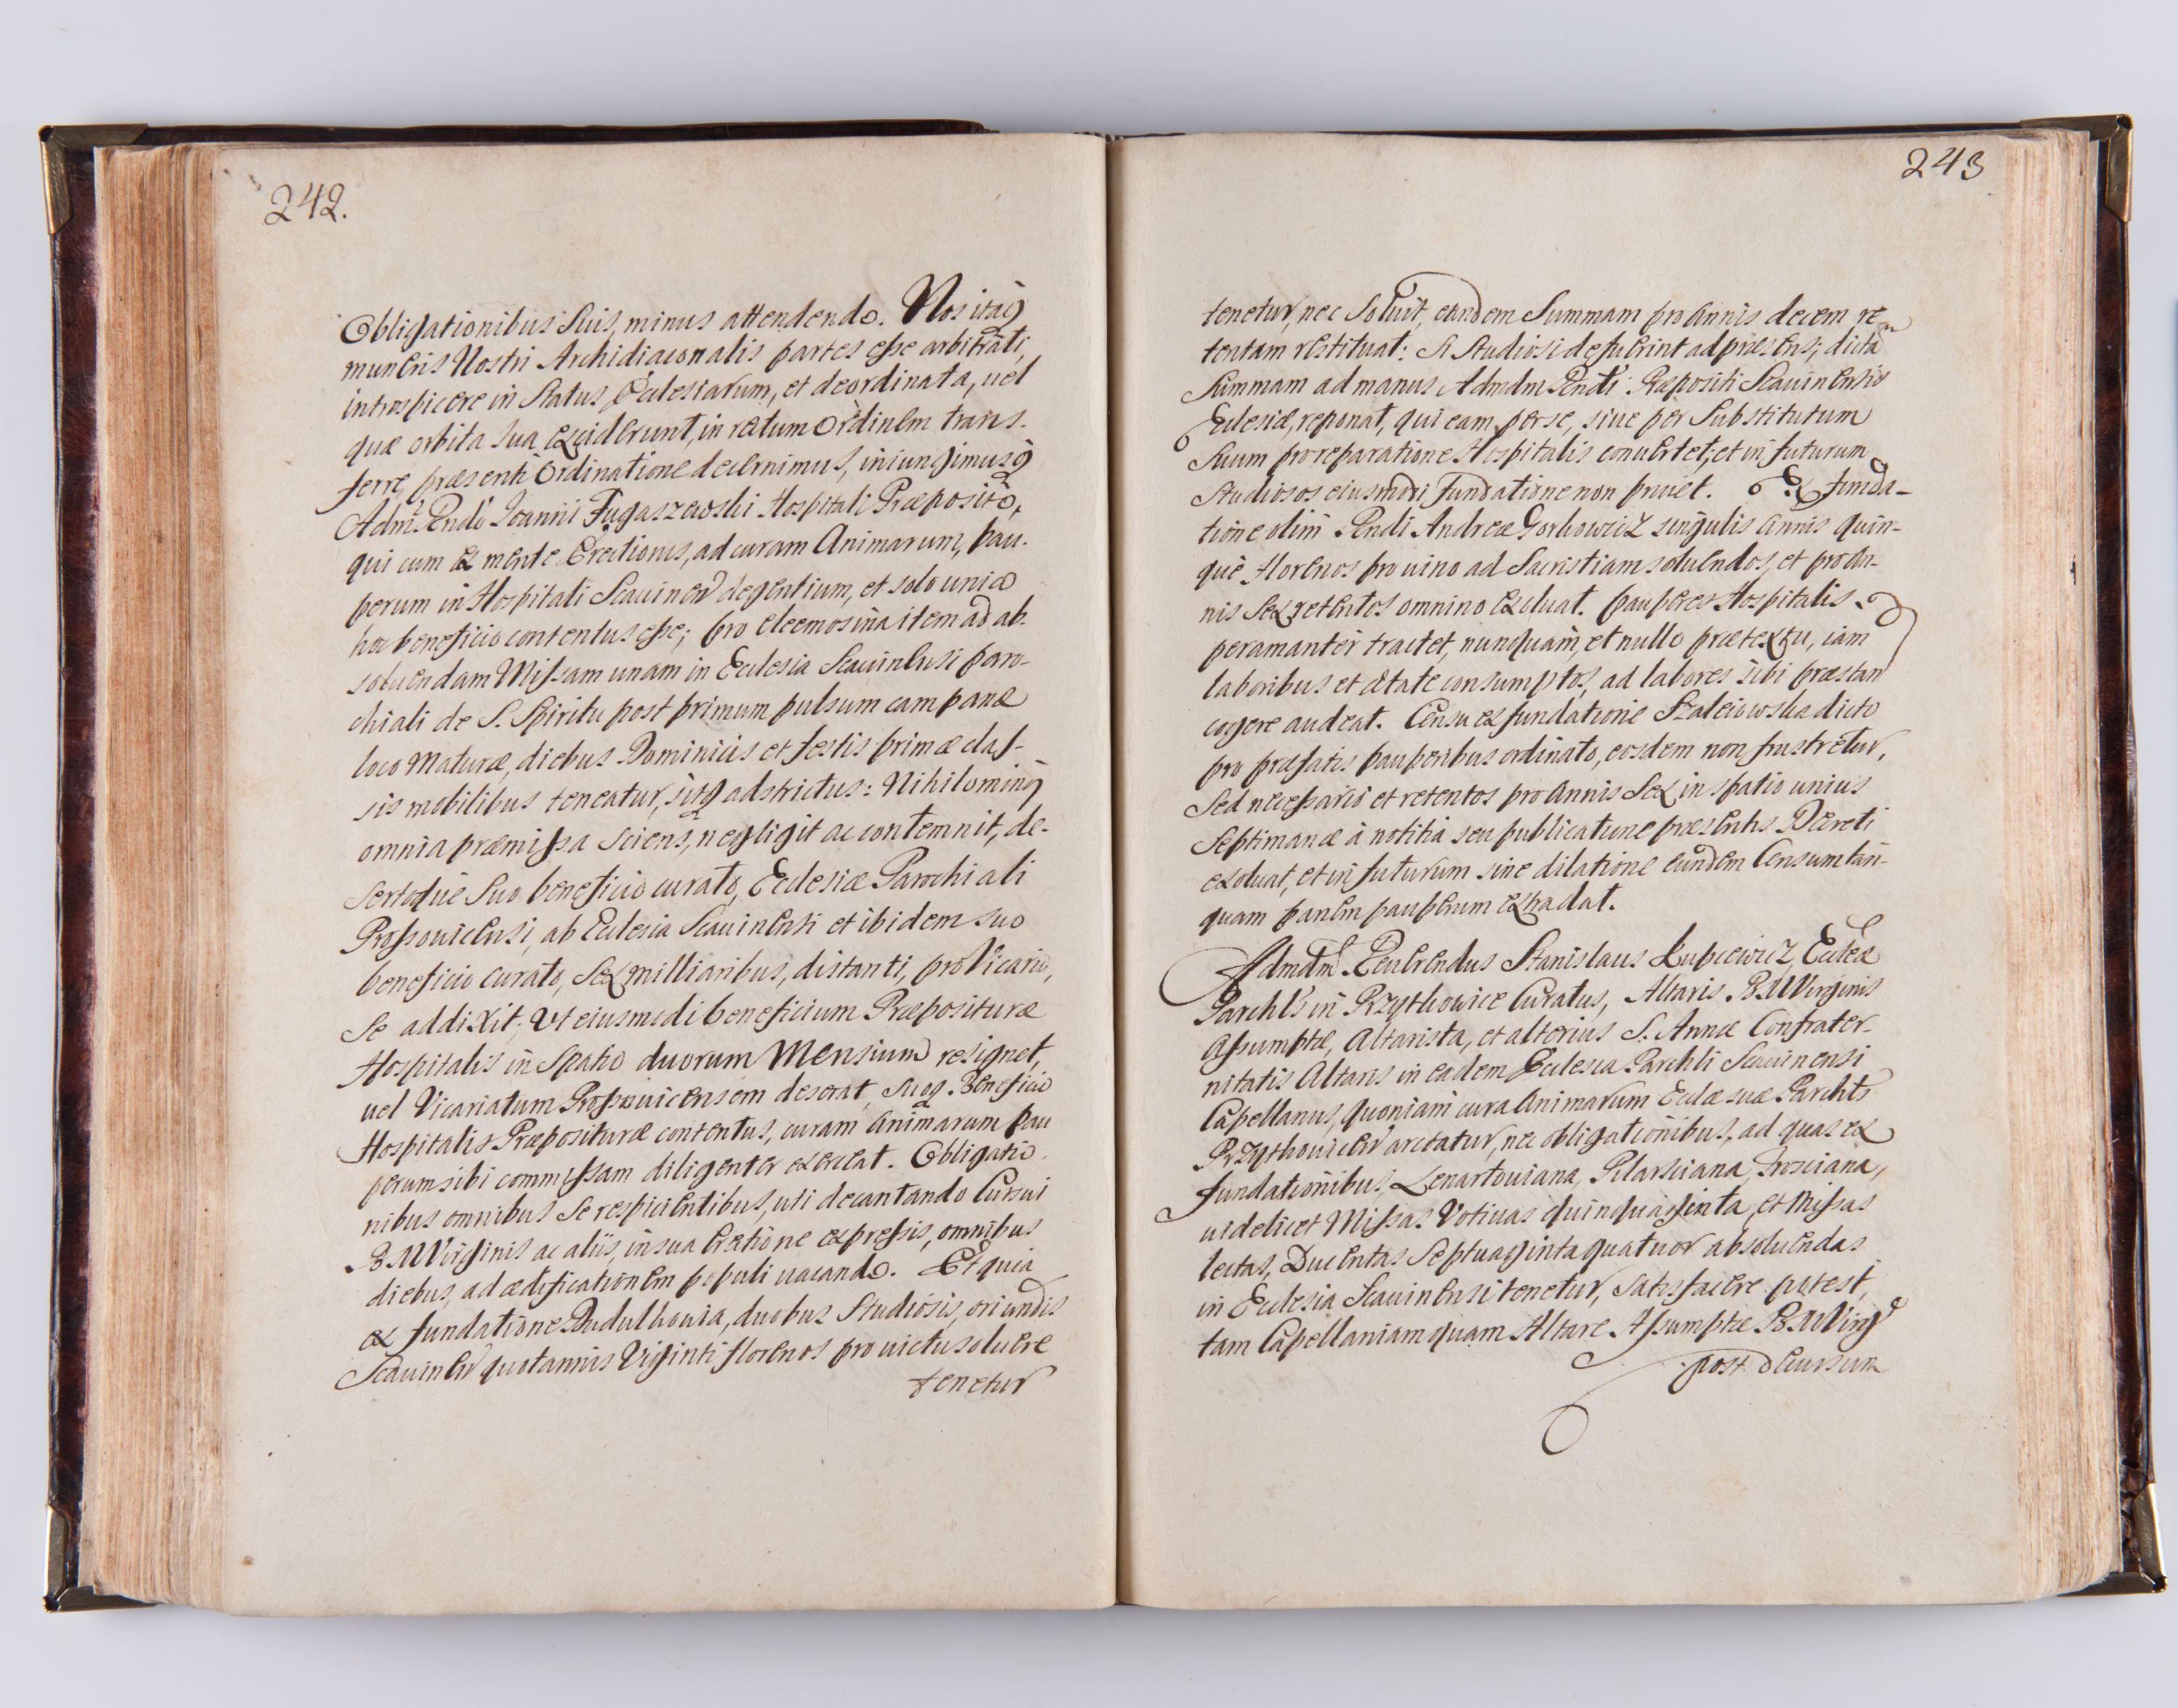 242.
Obligationibus Suis, minus attendendo. Nos itaq
muneris Nostri Archidiaconalis partes esse arbitrati,
introspicere in Status Ecclesiarum, et deordinata, uel
quæ orbita sua exciderunt, in rectum Ordinem trans-
ferre, præsenti Ordinatione decernimus, iniungimusq
Admº Rndo Joanni Fugaszewski Hospitali Præposito,
qui cum ex mente Erectionis, ad curam Animarum, pau-
perum in Hospitali Scauinen degentium, et solo unico
hoc beneficio contentus esse; pro eleemosina item ad ab-
soluendam Missam unam in Ecclesia Scauinensi paro-
chiali de S. Spiritu post primum pulsum campanæ
loco Maturæ, diebus Dominicis et festis primæ clas-
sis mobilibus teneatur, sitq adstrictus: Nihilominq
omnia præmissa sciens, negligit ac contemnit, de-
sertoque Suo beneficio curato, Ecclesiæ Parochiali
Proszouicensi, ab Ecclesia Scauinensi et ibidem suo
beneficio curato, Sex milliaribus, distanti, pro Vicario,
Se addixit; Vt eiusmodi beneficium Præposituræ
Hospitalis in Spatio duorum Mensium resignet,
uel Vicariatum Proszouicensem deserat, Suoq. Beneficio
Hospitalis Præposituræ contentus, curam Animarum pau
perum sibi commissam diligenter exerceat. Obligatio
nibus omnibus Se respicientibus, uti decantando Cursui
B. M Virginis ac aliis, in sua Erectione expressis, omnibus
diebus, ad ædificationem populi uacando. Et quia
ex fundatione Dudulhouia, duobus Studiosis, oriundis
Scauinen quotannis Viginti florenos pro uictu soluere
tenetur
243
tenetur, nec Soluit, eandem Summam pro Annis decem re
tentam restituat: Si Studiosi defuerint ad præsens, dictam
Summam ad manus Admdm Rndi Præpositi Scauinensis
Ecclesiæ, reponat, qui eam per se, siue per Substitutum
Suum pro reparatione Hospitalis conuertet, et in futurum
Studiosos eiusmodi fundatione non priuet. Ex funda-
tione olim Rndi Andreæ Gorhowicz singulis annis quin-
que florenos pro uino ad Sacristiam soluendos, et pro An-
nis Sex retentos omnino exoluat. pauperes Hospitalis
peramanter tractet, nunquam, et nullo prætextu, iam
laboribus et ætate consumptos, ad labores sibi præstan
cogere audeat. Censu ex fundatione Szalciowska dicto
pro præfatis pauperibus ordinato, eosdem non frustretur,
Sed necessario et retentos pro Annis Sex in spatio unius
Septimanæ à notitia seu publicatione præsentis Decreti
exoluat, et in futurum sine dilatione eundem Censum tan-
quam panem pauperum extradat.
Admdm Reuerendus Stanislaus Łupicewicz, Eccleæ
Parchlis in Przytkowice Curatus, Altaris B. M Virginis
Assumptæ, Altarista, et alterius S. Annæ Confrater-
nitatis Altaris in eadem Ecclesia Parchli Scauinensi
Capellanus, quoniam cura Animarum Eccleæ suæ Parchlis
Przytkouicen arctatur, nec obligationibus, ad quas ex
fundationibus, Lenartouiana, Pilarsciana, Prosciana,
uidelicet Missas Votiuas quinquaginta, et Missas
lectas, Ducentas Septuaginta quatuor absoluendas
in Ecclesia Scauinensi tenetur, Satisfacere potest,
tam Capellaniam quam Altare Assumptæ B. M Virgs
post decursum